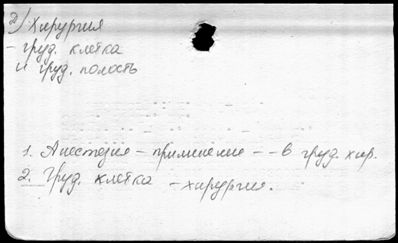 2) Хирургия
- груд. клетка
и груд. полость
1. Анестезия - применение - - в груд. хир.
2. Груд. клетка - хирургия.